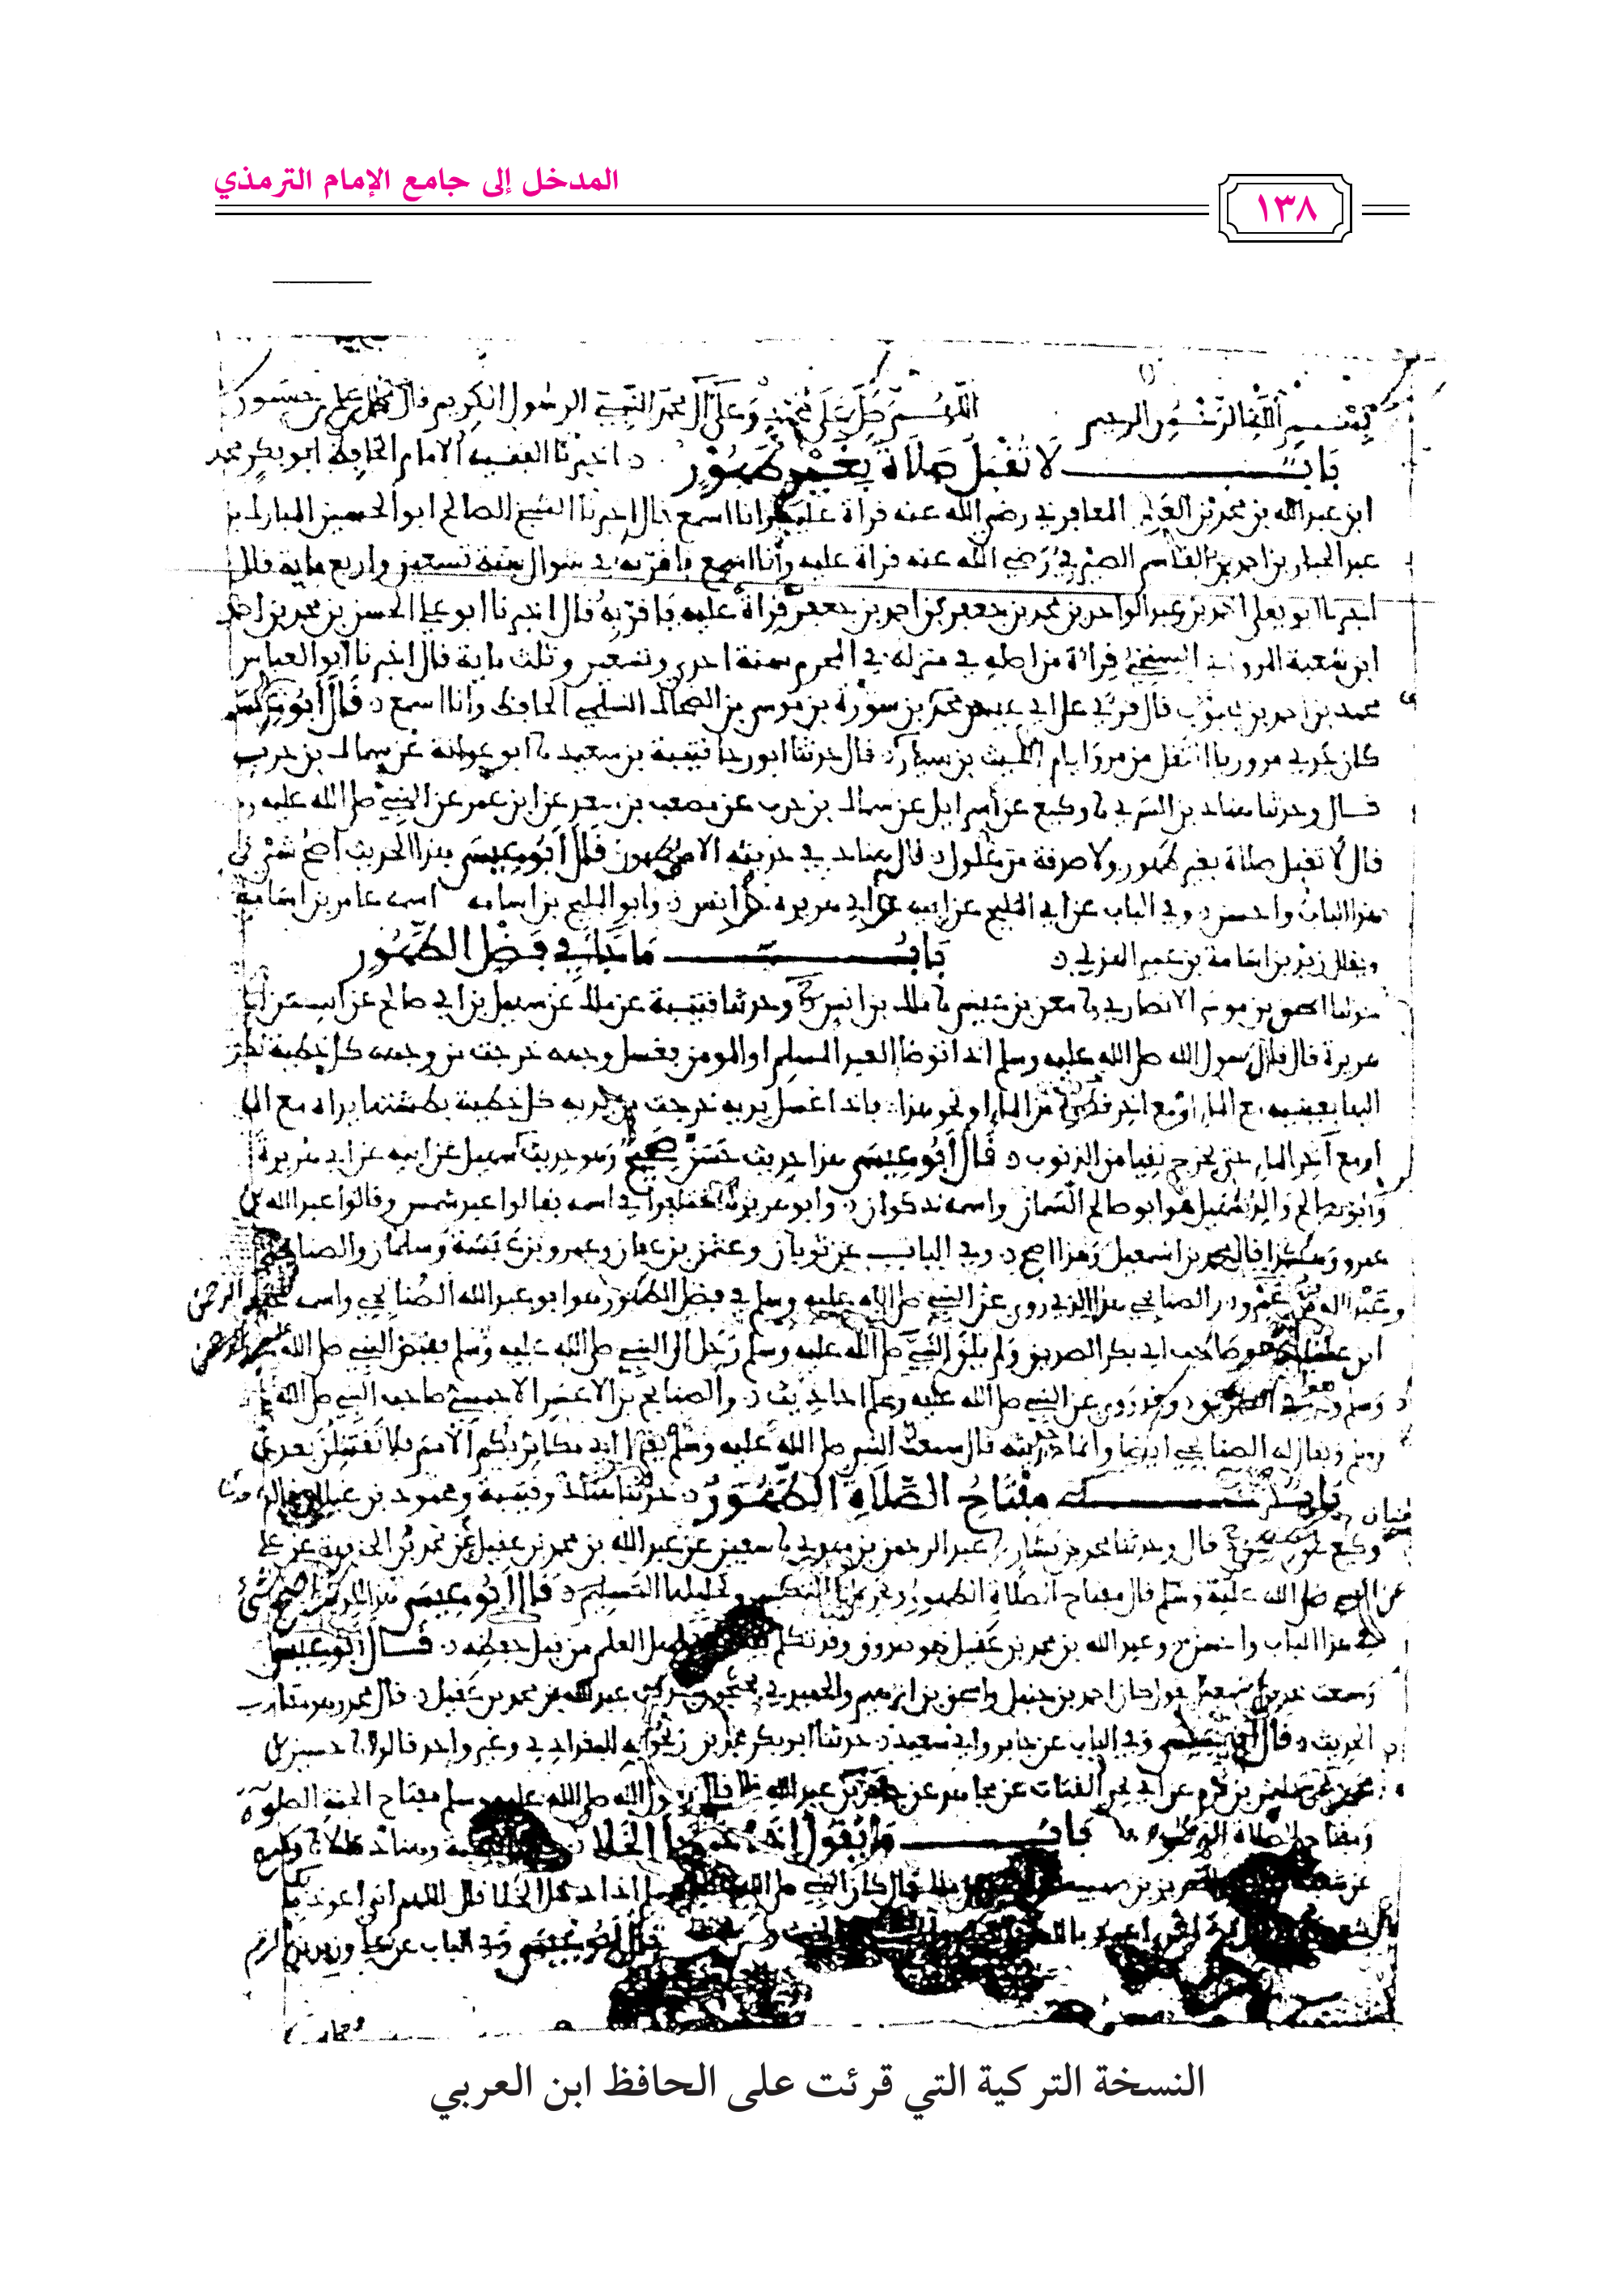 المدخل إلى جامع الإمام الترمذي
١٣٨
بسم الله الرحمن الرحيم اللهم صل على محمد وعلى آل محمد النبي الرسول الكريم قال
باب لا تقبل صلاة بغير طهور اخبرنا الفقيه الامام الحافظ ابو بكر محمد
ابن عبد الله بن محمد بن العربي المعافري رضي الله عنه قراة عليه وانا اسمع قال اخبرنا الشيخ الصالح ابو الحسين المبارك بن
عبد الجبار بن احمد بن القاسم الصيرفي رضي الله عنه قراة عليه وأنا اسمع فاقر به في شوال سنة تسعين واربع ماية قال
اخبرنا ابو يعلى احمد بن عبد الواحد بن محمد بن جعفر بن احمد بن جعفر قراة عليه فاقر به قال اخبرنا ابو علي الحسن بن محمد بن احمد
ابن شعبة المروزي السنجي قراءة من اصله في منزله في المحرم سنة احدى وتسعين وثلث ماية قال اخبرنا ابو العباس
محمد بن احمد بن محبوب قال قري على ابي عيسى محمد بن سورة بن موسى بن الضحاك السلمي الحافظ وأنا اسمع قال أبو عيسى
كان جدي مروزيا انتقل من مرو ايام الليث بن سيار قال حدثنا ابو رجا قتيبة بن سعيد نا ابو عوانة عن سماك بن حرب
قال وحدثنا هناد بن السري نا وكيع عن اسرايل عن سماك بن حرب عن مصعب بن سعد عن ابن عمر عن النبي صلى الله عليه
قال لا تقبل صلاة بغير طهور ولا صدقة من غلول قال هناد في حديثه الا بطهور قال أبو عيسى هذا الحديث أصح شي في
هذا الباب واحسن وفي الباب عن ابي المليح عن ابيه وابي هريرة وانس وابو المليح بن اسامه اسمه عامر بن اسامة
ويقال زيد بن اسامة بن عمير الهذلي باب ما جاء في فضل الطهور
حدثنا اسحق بن موسى الانصاري نا معن بن عيسى نا ملك بن انس وحدثنا قتيبة عن ملك عن سهيل بن ابي صالح عن ابيه عن ابي
هريرة قال قال رسول الله صلى الله عليه وسلم اذا توضا العبد المسلم او المومن فغسل وجهه خرجت من وجهه كل خطية نظر
اليها بعينيه مع الما او مع اخر قطر الما او نحو هذا فاذا غسل يديه خرجت من يديه كل خطية بطشتها يداه مع الما
او مع آخر قطر الما حتى يخرج نقيا من الذنوب قال أبو عيسى هذا حديث حسن صحيح وهو حديث سهيل عن ابيه عن ابي هريرة
وأبو صالح والد سهيل هو ابو صالح السمان واسمه ذكوان وابو هريرة اختلفوا في اسمه فقالوا عبد شمس وقالوا عبد الله بن
عمرو وهكذا قال محمد بن اسمعيل وهذا اصح وفي الباب عن ثوبان وعثمن بن عفان وعمرو بن عبسة وسلمان والصنابحي
وعبد الله بن عمرو والصنابحي هذا الذي روى عن النبي صلى الله عليه وسلم في فضل الطهور هو ابو عبد الله الصنابحي واسمه عبد الرحمن
ابن عسيلة هو صاحب ابي بكر الصديق ولم يلق النبي صلى الله عليه وسلم رحل الى النبي صلى الله عليه وسلم فقبض النبي صلى الله عليه
وسلم وهو في الطريق وقد روى عن النبي صلى الله عليه وسلم احاديث والصنابح بن الاعسر الاحمسي صاحب النبي صلى الله
ويقال له الصنابحي ايضا وانما حديثه قال سمعت النبي صلى الله عليه وسلم يقول اني مكاثر بكم الامم فلا تقتتلن بعدي
باب مفتاح الصلاة الطهور حدثنا هناد وقتيبة ومحمود بن غيلان قالوا
وكيع عن سفين قال وحدثنا محمد بن بشار نا عبد الرحمن بن مهدي نا سفين عن عبد الله بن محمد بن عقيل عن محمد بن الحنفية عن علي
عن النبي صلى الله عليه وسلم قال مفتاح الصلاة الطهور وتحريمها التكبير وتحليلها التسليم قال أبو عيسى هذا الحديث اصح شي
في هذا الباب واحسن وعبد الله بن محمد بن عقيل هو صدوق وقد تكلم اهل العلم من قبل حفظه قال أبو عيسى
وسمعت محمد بن اسمعيل يقول كان احمد بن حنبل واسحق بن ابرهيم والحميدي يحتجون بحديث عبد الله بن محمد بن عقيل قال محمد وهو مقارب
الحديث قال أبو عيسى وفي الباب عن جابر وابي سعيد حدثنا ابو بكر محمد بن زنجويه البغدادي وغير واحد قالوا نا حسين بن
محمد سليمن بن قرم عن ابي يحيى القتات عن مجاهد عن جابر بن عبد الله قال قال رسول الله صلى الله عليه وسلم مفتاح الجنة الصلوة
ومفتاح الصلاة باب ما يقول إذا دخل الخلا وهناد قالا
كان النبي صلى الله اذا دخل الخلا قال اللهم اني اعوذ بك
قال أبو عيسى وفي الباب عن علي وزيد بن ارقم
النسخة التركية التي قرئت على الحافظ ابن العربي